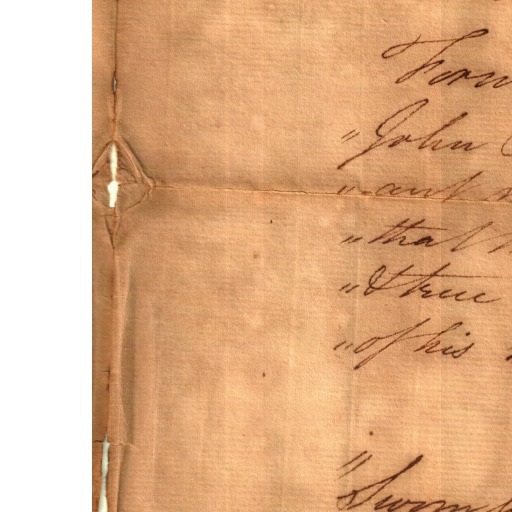 "John
"ant
"that
"& true
"of his
"Sworn